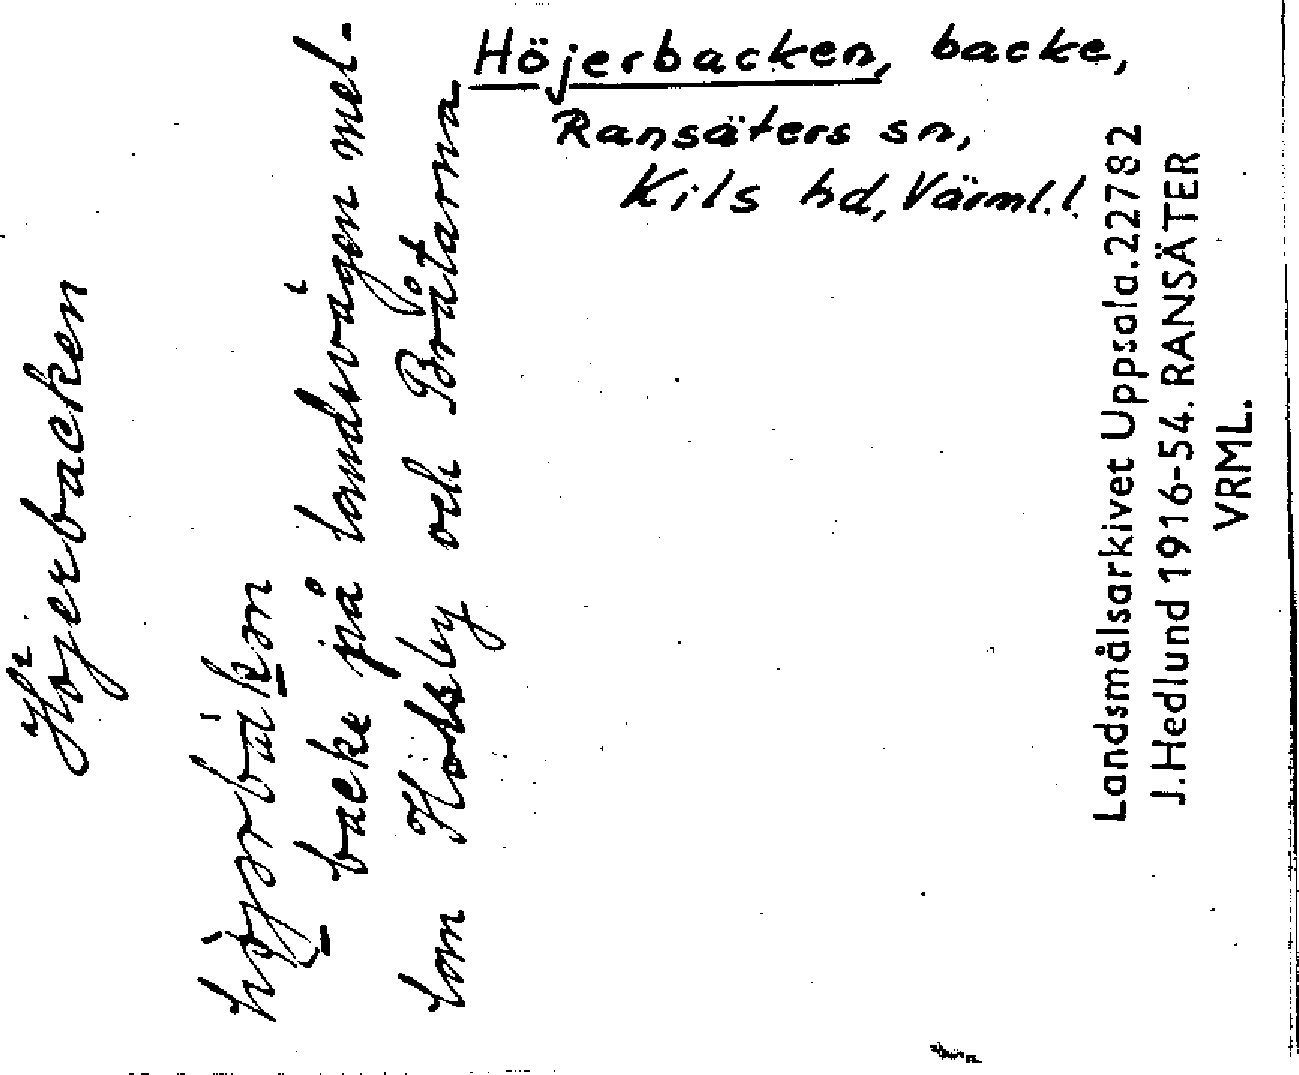 Höjerbacken, backe,
Ransäters sn,
Kils hd, Värml.l.
Höjerbacken
backe på landsvägen mel-
lan och Bråtarna
Landsmålsarkivet Uppsala. 22782
J. Hedlund 1916-54. RANSÄTER
VRML.